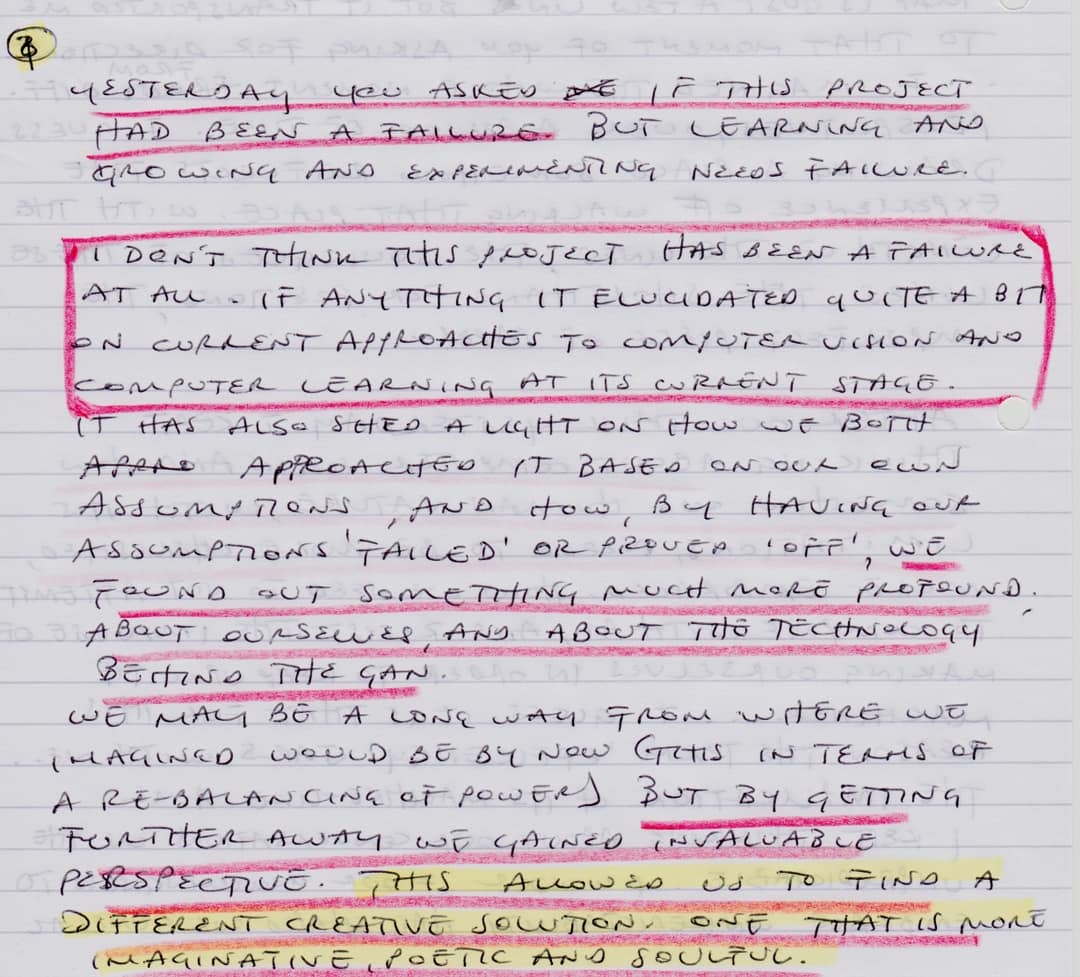 8
YESTERDAY YOU ASKED IF THIS PROJECT
HAD BEEN A FAILURE. BUT LEARNING AND
GROWING AND EXPERIMENTING NEEDS FAILURE.
I DON'T THINK THIS PROJECT HAS BEEN A FAILURE
AT ALL. IF ANYTHING IT ELUCIDATED QUITE A BIT
ON CURRENT APPROACHES TO COMPUTER VISION AND
COMPUTER LEARNING AT ITS CURRENT STAGE.
IT HAS ALSO SHED A LIGHT ON HOW WE BOTH
APPROACHED IT BASED ON OUR OWN
ASSUMPTIONS, AND HOW, BY HAVING OUR
ASSUMPTIONS 'FAILED' OR PROVED 'OFF', WE
FOUND OUT SOMETHING MUCH MORE PROFOUND.
ABOUT OURSELVES, AND ABOUT THE TECHNOLOGY
BEHIND THE GAN.
WE MAY BE A LONG WAY FROM WHERE WE
IMAGINED WOULD BE BY NOW (THIS IN TERMS OF
A RE-BALANCING OF POWER) BUT BY GETTING
FURTHER AWAY WE GAINED INVALUABLE
PERSPECTIVE. THIS ALLOWED US TO FIND A
DIFFERENT CREATIVE SOLUTION. ONE THAT IS MORE
IMAGINATIVE, POETIC AND SOULFUL.